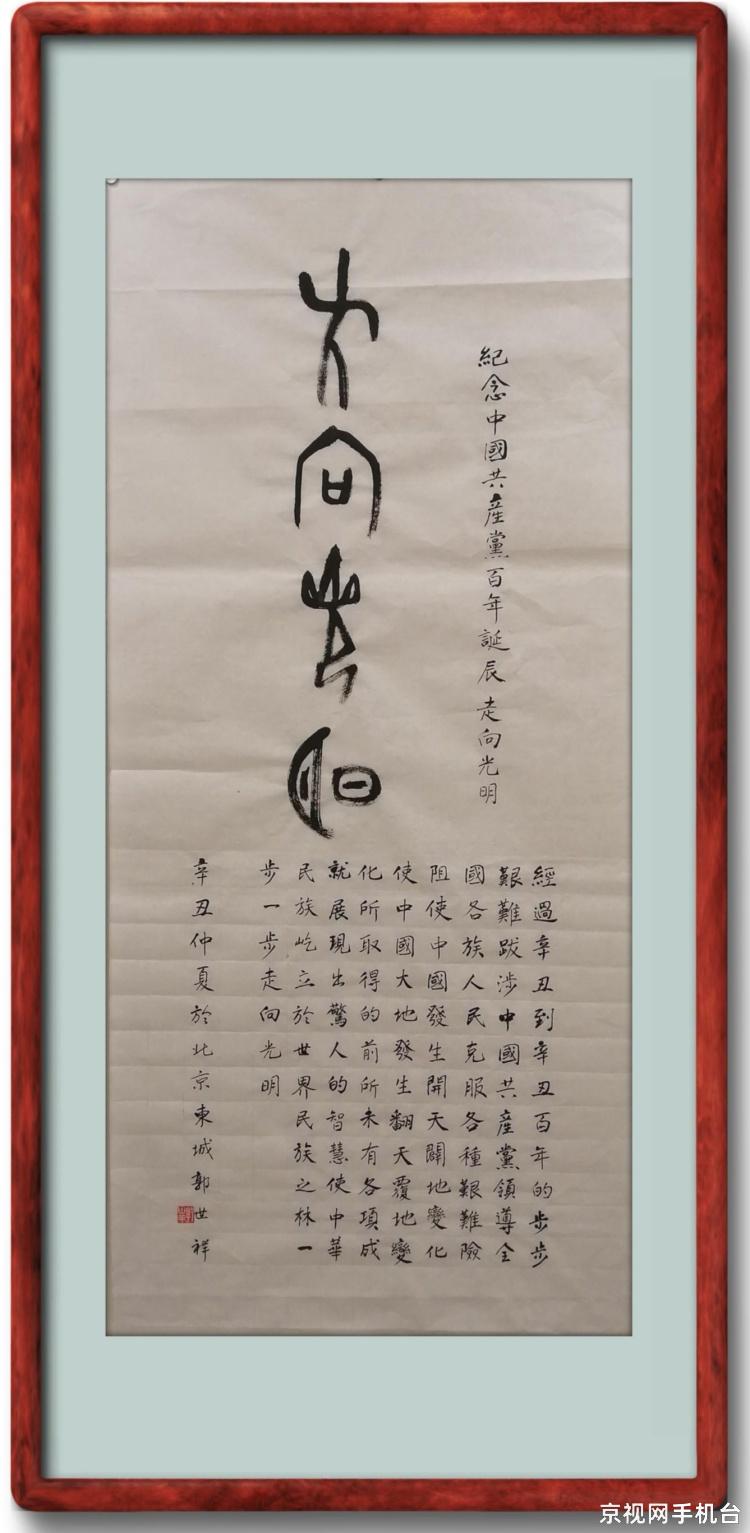 紀念中國共産黨百年誕辰 走向光明
走向光明
經過辛丑到辛丑百年的步步
艱難跋涉中國共産黨領導全
國各族人民克服各種艱難險
阻使中國發生開天闢地變化
使中國大地發生翻天覆地變
化所取得的前所未有各項成
就展現出驚人的智慧使中華
民族屹立於世界民族之林一
步一步走向光明
辛丑仲夏於北京東城郭世祥
京视网手机台